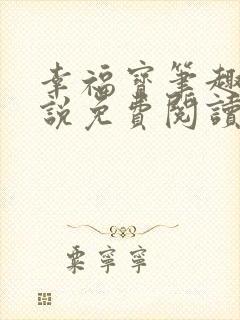 幸福寶筆趣
說免費閱讀
粟寧寧